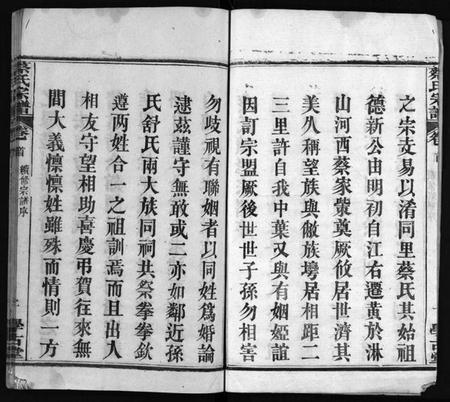 蔡氏宗譜
卷
之崇支易以淆同里蔡氏其始祖
德新公由明初自江右遷黃於淋
山河西蔡家䉪奠厥攸居世濟其
美久稱望族與敝族塆居相距二
三里許自我中葉又與有姻婭誼
因訂宗盟厥後世世子孫勿相害
學古堂
勿歧視有聯姻者以同姓為婚論
逮茲謹守無敢或二亦如鄰近孫
氏舒氏兩大族同祠共祭拳拳欽
遵兩姓合一之祖訓焉而且出入
相友守望相助喜慶弔賀往來無
間大義懍懍姓雖殊而情則一方
蔡氏宗譜
卷首
續修宗譜序
學古堂